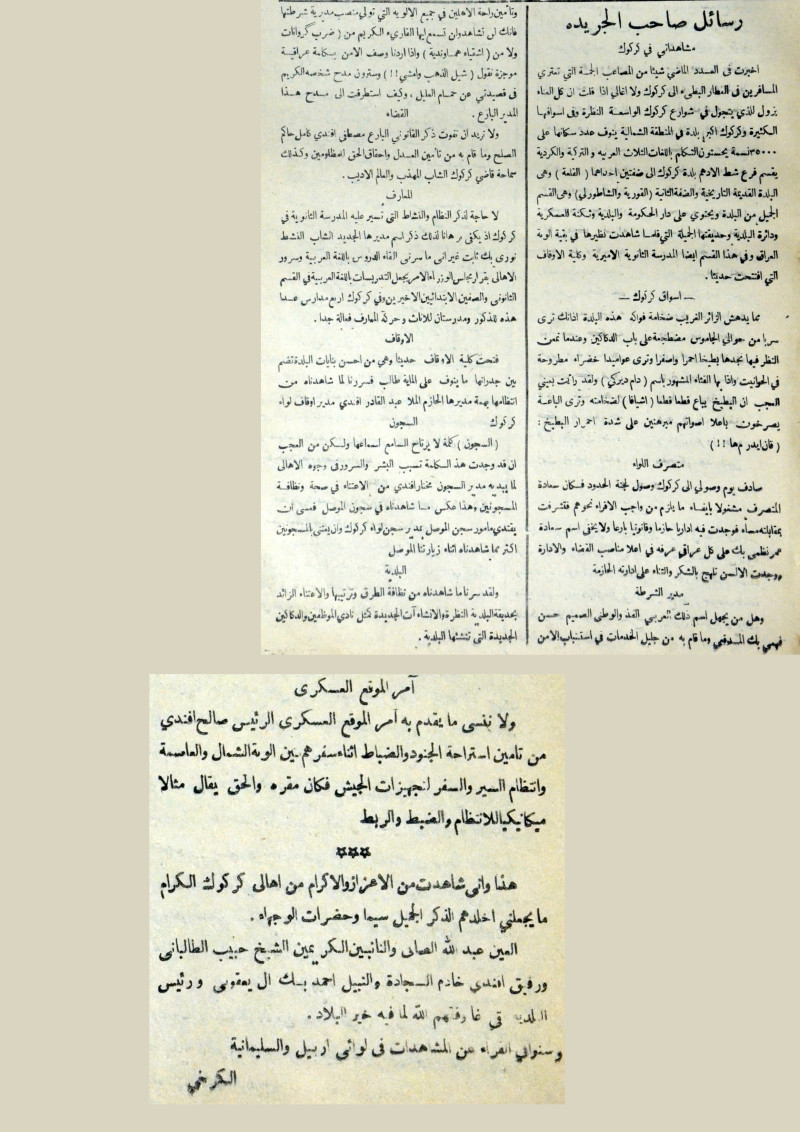 رسائل صاحب الجريده
مشاهداتي في كركوك
اخبرت في العدد الماضي شيئا من المصاعب الجمة التي تعتري
المسافرين في القطار البطيء الى كركوك ولا اغالي اذا قلت ان كل العناء
يزول للذي يتجول في شوارع كركوك الواسعة النظرة وفي اسواقها
الكثيرة وكركوك اكبر بلدة في المنطقة الشمالية ينوف عدد سكانها على
٣٥٠٠٠ نسمة يحسنون التكلم باللغات الثلاث العربيه و التركية والكردية
يقسم فرع شط الادهم بلدة كركوك الى ضفتين احداهما ( القلعة ) وهي
البلدة القديمة التاريخية والضفة الثانية ( القورية والشاطورلي ) وهي القسم
الجميل من البلدة ويحتوي على دار الحكومة والبلدية وثكنة للعسكرية
ودائرة البلدية وحديقتها الجميلة التي قلما شاهدت نظيرها في بقية الوية
العراق وفي هذا القسم ايضا المدرسة الثانوية الاميرية وكلية الاوقاف
التي افتتحت حديثا .
— اسواق كركوك —
مما يدهش الزائر الغريب ضخامة فواكه هذه البلدة اذانك ترى
سربا من حوالي الجاموس مضطجعة على باب الدكاكين وعندما تمعن
النظر فيها تجدها بطيخا احمرا واصفرا وترى عواميدا خضراء مطروحة
في الحوانيت واذا بها القثاء المشهور باسم ( دام ديركي ) ولقد رائت بعيني
العجب ان البطيخ يباع قطعا قطعا ( اشيافا ) لضخامته وترى الباعة
يصرخون باعلا اصواتهم مبرهنين على شدة احمرار البطيخ :
( قان ايدرم ها !! )
متصرف اللواء
صادف يوم وصولي الى كركوك وصول لجنة الحدود فكان سعادة
المتصرف مشغولا بايفاء ما يلزم من واجب الاقراء نحوهم فتشرفت
بمقابلته مساء فوجدت فيه اداريا حازما وقانونيا بارعا ولا يخفى اسم سعادة
عمر نظمي بك على كل عراقي عرفه في اعلا مناصب القضاء والادارة
ووجدت الالسن تلهج بالشكر والثناء على ادارته الحازمة
مدير الشرطة
وهل من يجهل اسم ذلك العربي الفذ والوطني الصميم حسن
فهمي بك المدفعي وما قام به من جليل الخدمات في استتباب الامن
وتأمين راحة الاهلين في جميع الالويه التي تولي منصب مديرية شرطتها
فانك لن تشاهد وان تسمع ايها القاريء الكريم من ( ضرب گروانات
ولا من ( اشقياء هماوندية ) واذا اردنا وصف الامن بكلمة عراقية
موجزة نقول ( شيل الذهب وامشي !! ) وسترون مدح شخصه الكريم
في قصيدتي عن حمام العليل ، وكيف استطرقت الى مدح هذا
المدير البارع . القضاء
ولا نريد ان نفوت ذكر القانوني البارع مصطفى افندي كامل حاكم
الصلح وما قام به من تأمين العدل واحقاق الحق للمظلومين وكذلك
سماحة قاضي كركوك الشاب المهذب والعالم الاديب .
المعارف
لا حاجة لذكر النظام والنشاط التي تسير عليه المدرسة الثانوية في
كركوك اذ يكفي برهانا لذلك ذكر اسم مديرها الجديد الشاب النشط
نوري بك ثابت غير اني ما سرني القاء الدروس باللغة العربية وسرور
الاهالي بقرار مجلس الوزراء الامر بجعل التدريسات باللغة العربية في القسم
الثانوي والصفين الابتدائيين الاخيرين وفي كركوك اربع مدارس عدا
هذه للذكور ومدرستان للاناث وحركة المعارف فعالة جدا .
الاوقاف
فتحت كلية الاوقاف حديثا وهي من احسن بنايات البلدة تضم
بين جدرانها ما ينوف على الماية طالب فسررنا لما شاهدناه من
انتظامها بهمة مديرها الحازم الملا عبد القادر افندي مدير اوقاف لواء
كركوك السجون
( السجون ) كلمة لا يرتاح السامع لسماعها ولكن من العجب
ان قد وجدت هذه الكلمة تسبب البشر والسرور في وجوه الاهالي
لما يبديه مدير السجون مختار افندي من الاعتناء في صحة ونظافة
المسجونين وهذا عكس ما شاهدناه في سجون الموصل فعسى ان
يقتدي مامور سجن الموصل بمدير سجن لواء كركوك وان يعتني بالمسجونين
اكثر مما شاهدناه اثناء زيارتنا الموصل
البلدية
ولقد سرنا ما شاهدناه من نظافة الطرق وترتيبها والاعتناء الزائد
بحديقة البلدية النظرة والانشاءآت الجديدة مثل نادي الموظفين والدكاكين
الجديدة التي تنشئها البلدية .
آمر الموقع العسكري
ولا ننسى ما يقدم به آمر الموقع العسكري الرئيس صالح افندي
من تأمين استراحة الجنود والضباط اثناء سفرهم بين الوية الشمال والعاصمة
وانتظام السير والسفر لتجهيزات الجيش فكان مقره والحق يقال مثالا
ميكانيكيا للانتظام والضبط والربط
***
هذا واني شاهدت من الاعزاز والاكرام من اهالي كركوك الكرام
ما يجعلني اخلد هم الذكر الجميل سيما وحضرات الوجهاء .
العين عبد الله الصافي والنائبين الكريمين الشيخ حبيب الطالباني
ورفيق افندي خادم السجادة والنبيل احمد بك ال يعقوبي ورئيس
البلدية وفقهم الله لما فيه خير البلاد .
وسنوافي القراء عن المشاهدات في لوائي اربيل والسليمانية
الكرخي